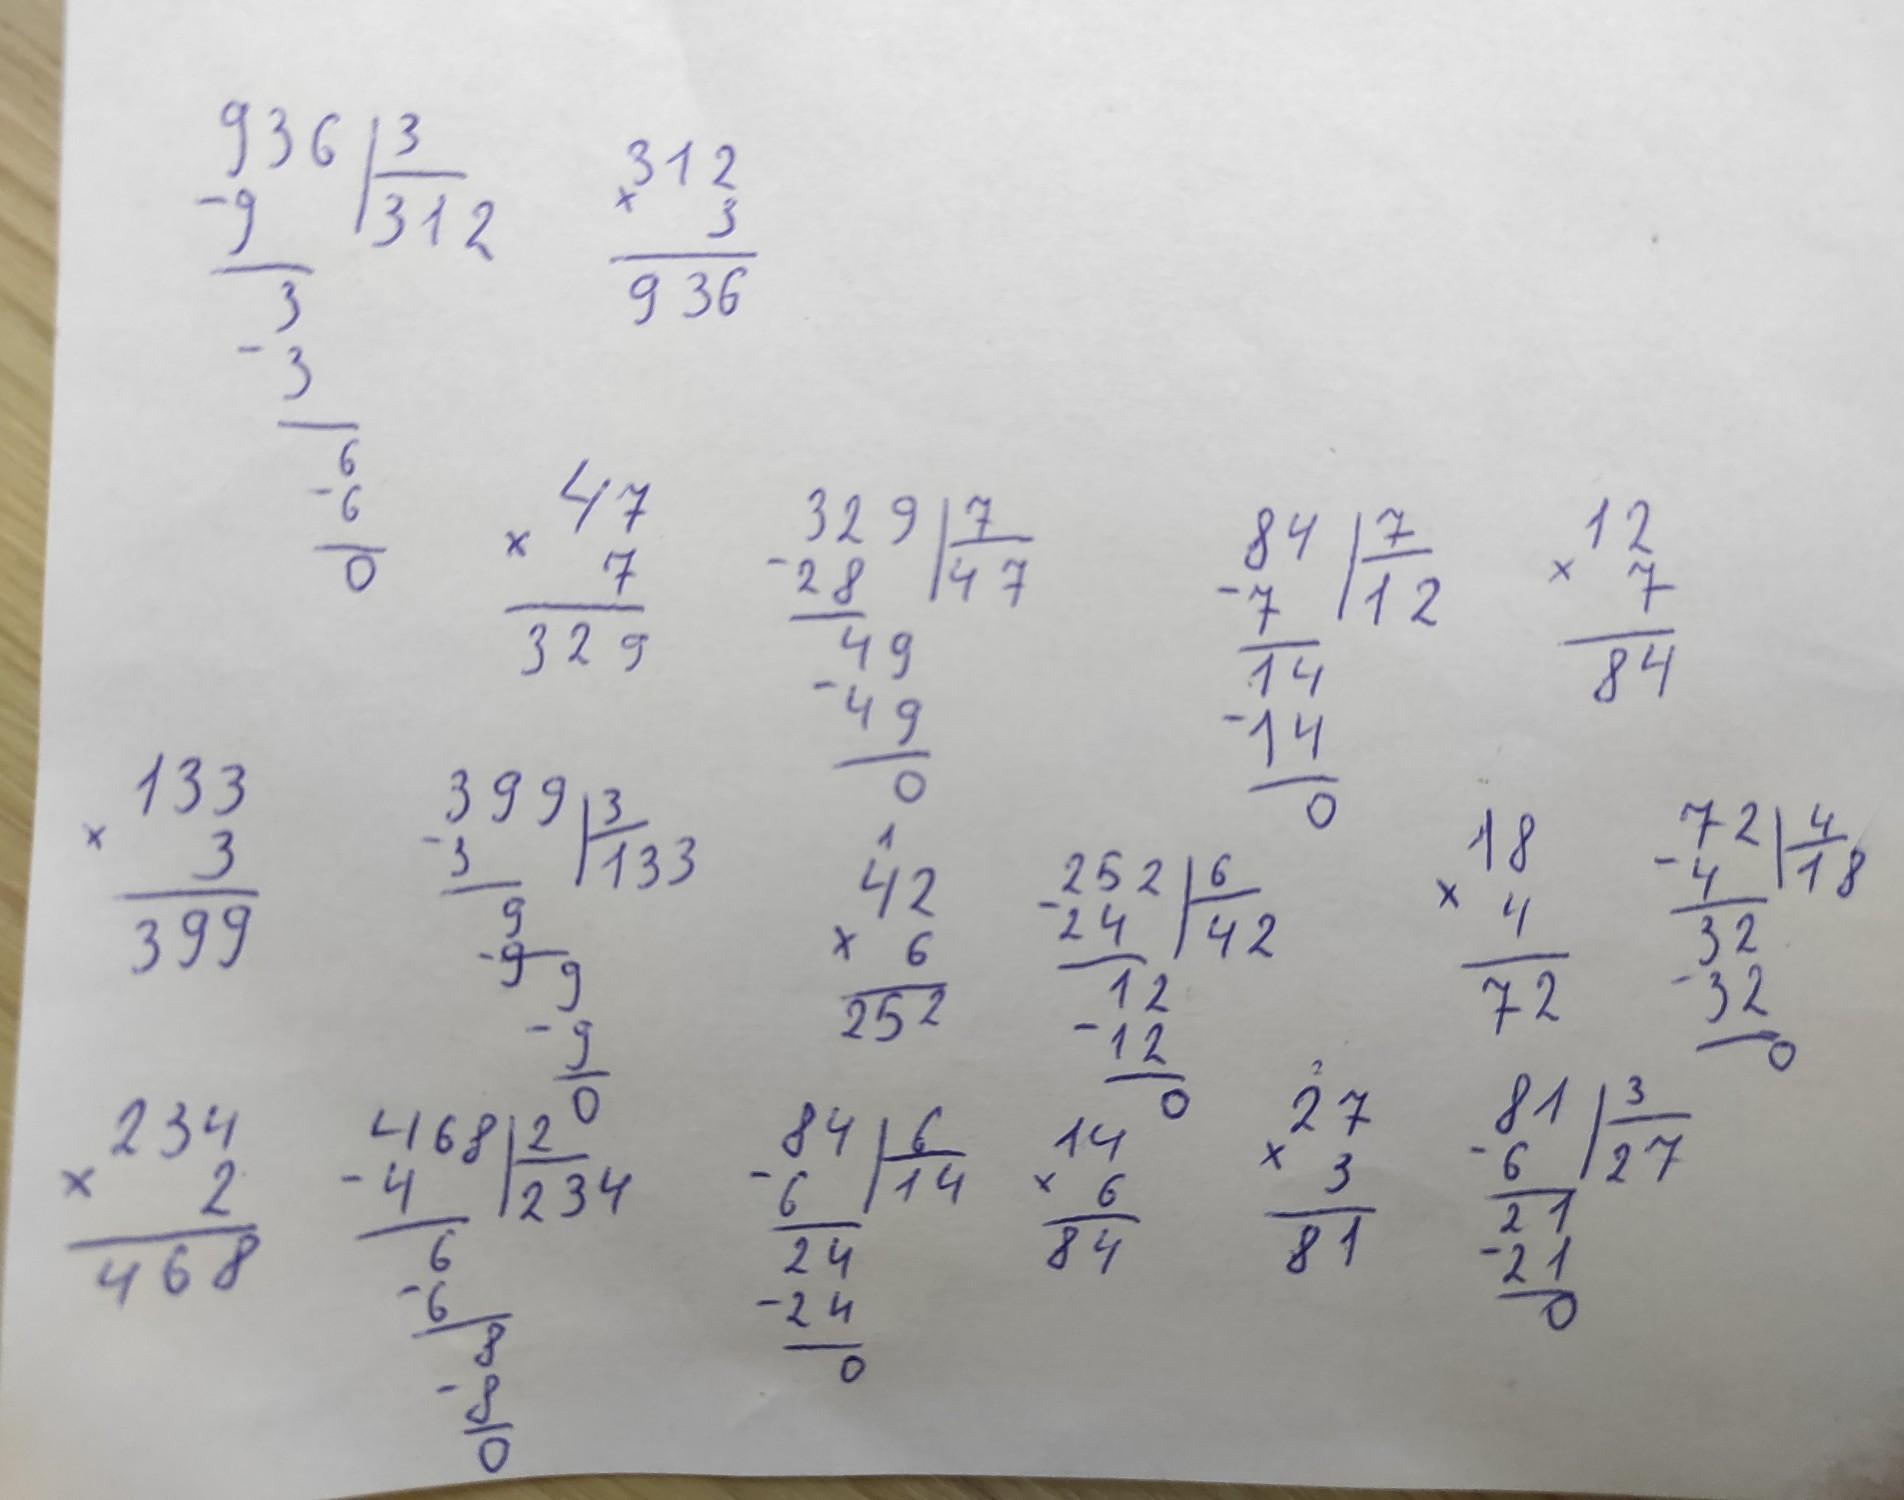 936 3
-9 312
3
-3
6
-6
0
312
× 3
936
47
× 7
329
329 7
-28 47
49
-49
0
84 7
-7 12
14
-14
0
12
× 7
84
133
× 3
399
399 3
-3 133
9
-9
9
-9
0
1
42
× 6
252
252 6
-24 42
12
-12
0
18
× 4
72
72 4
-4 18
32
-32
0
234
× 2
468
468 2
-4 234
6
-6
8
-8
0
84 6
-6 14
24
-24
0
14
× 6
84
2
27
× 3
81
81 3
-6 27
21
-21
0